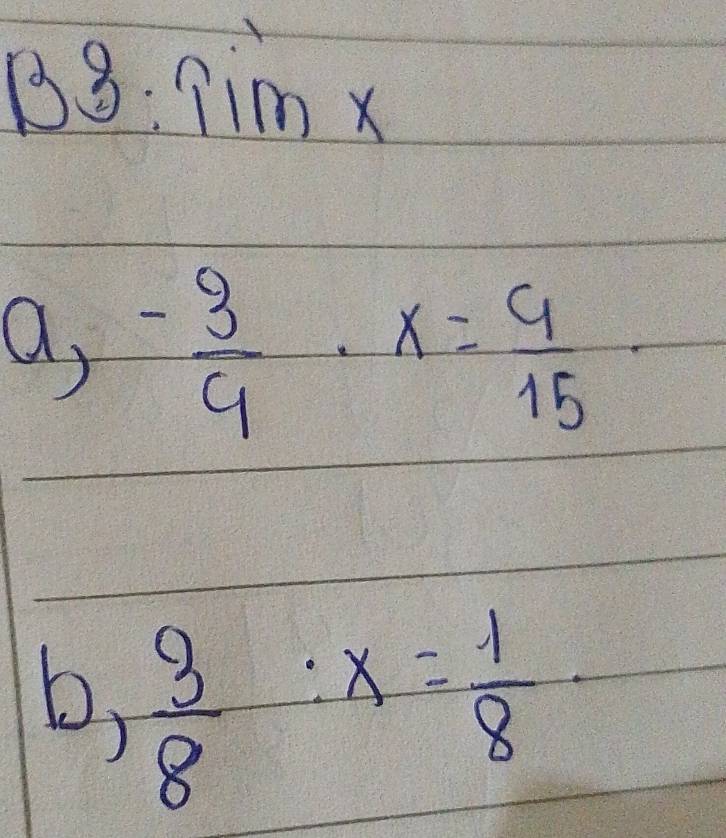 B3: Tìm x
a, -3/4 . x = 4/15 .
b, 3/8 : x = 1/8 .